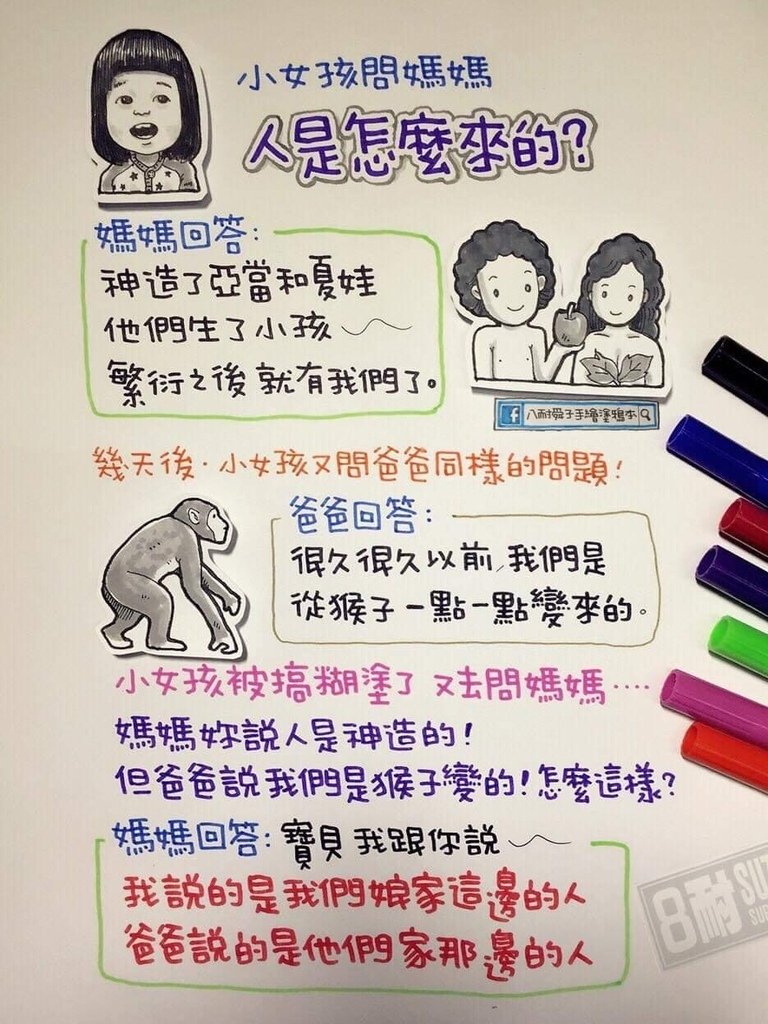 小女孩問媽媽
人是怎麼來的?
媽媽回答:
神造了亞當和夏娃
他們生了小孩～
繁衍之後就有我們了。
八耐舜子手繪塗鴉本
幾天後.小女孩又問爸爸同樣的問題!
爸爸回答:
很久很久以前,我們是
從猴子一點一點變來的。
小女孩被搞糊塗了 又去問媽媽····
媽媽妳說人是神造的!
但爸爸說我們是猴子變的!怎麼這樣?
媽媽回答:寶貝我跟你說～
我說的是我們娘家這邊的人
爸爸說的是他們家那邊的人
8耐